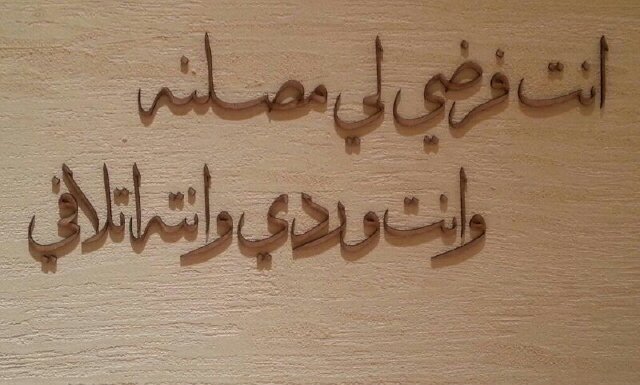 انت فرضي لي مصلنه
وانت وردي وانته اتلافي